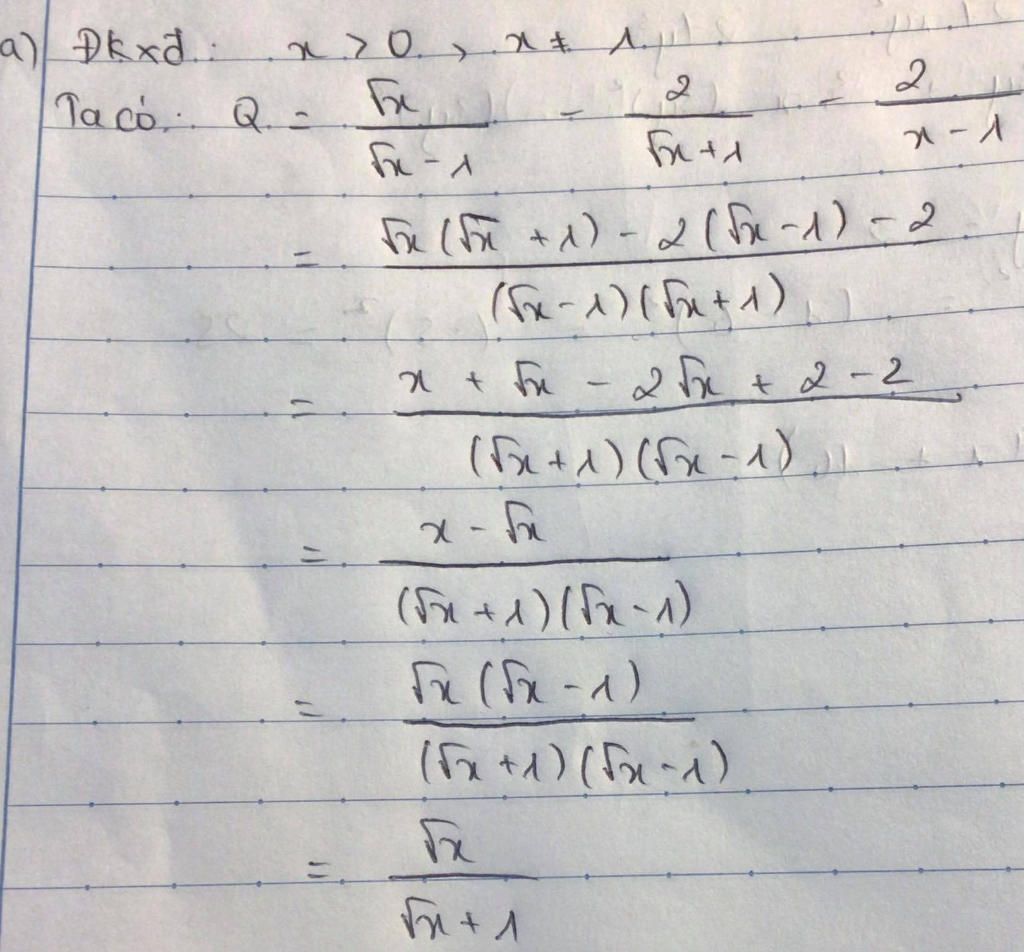 a) Đkxđ: x > 0, x ≠ 1
Ta có: Q = √x/(√x - 1) - 2/(√x + 1) - 2/(x - 1)
= (√x(√x + 1) - 2(√x - 1) - 2)/((√x - 1)(√x + 1))
= (x + √x - 2√x + 2 - 2)/((√x + 1)(√x - 1))
= (x - √x)/((√x + 1)(√x - 1))
= (√x(√x - 1))/((√x + 1)(√x - 1))
= √x/(√x + 1)